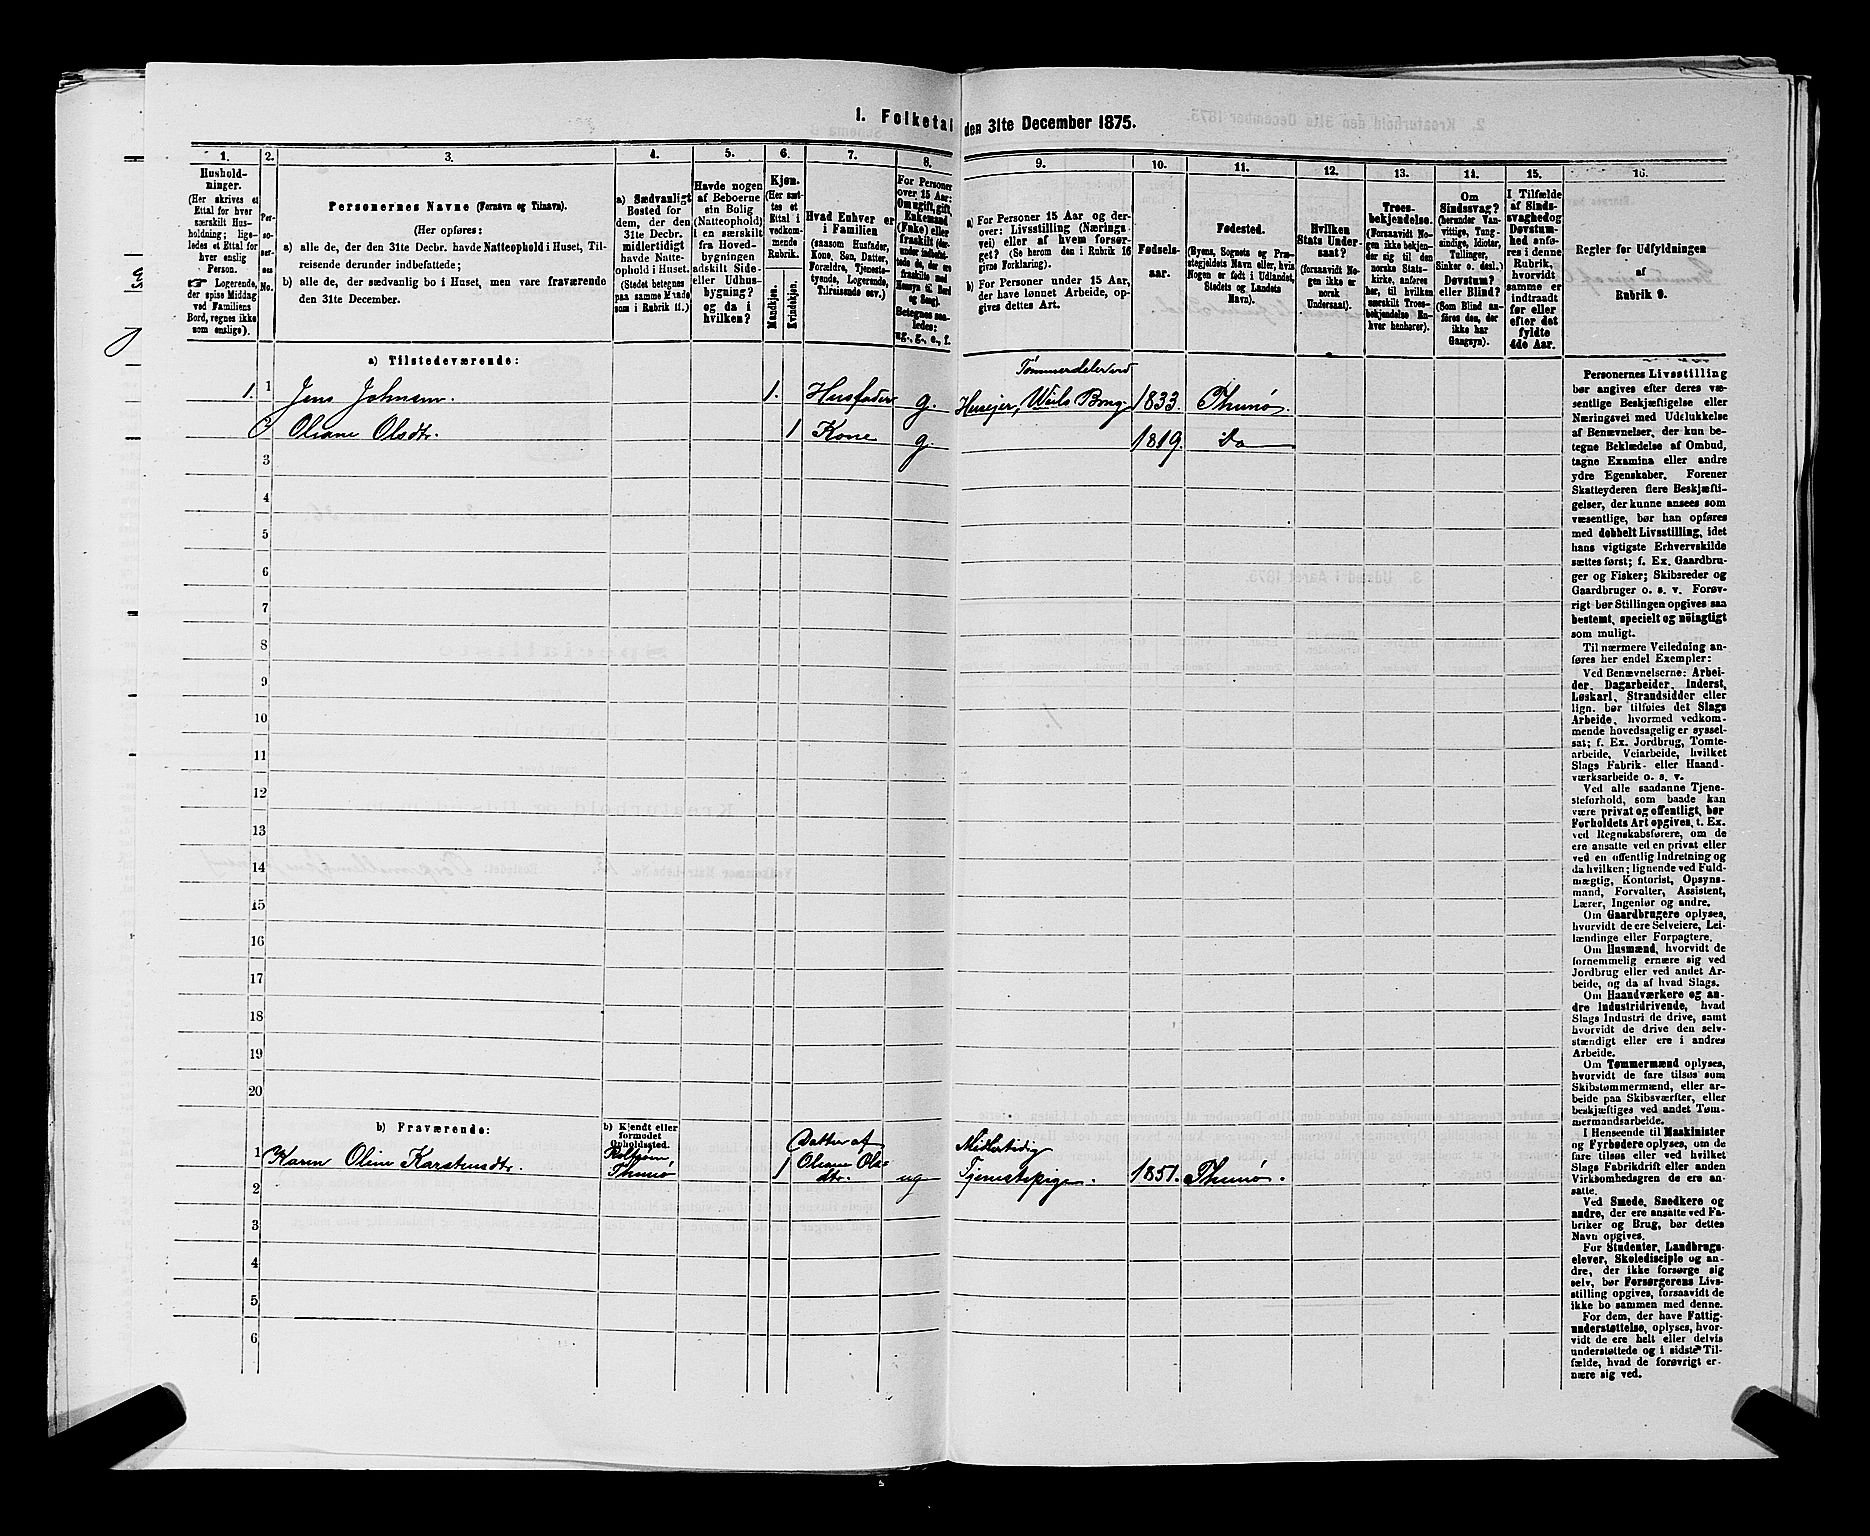 1. Folketal den 31te December 1875.
1. 2. 3. 4. 5. 6. 7. 8. 9. 10. 11. 12. 13. 14. 15. 16.
Hushold-
ninger.
(Her skrives et
Ettal for hver
særskilt Hus-
holdning; lige-
ledes et Ettal for
hver enslig
Person.
☞ Logerende,
der spise Middag
ved Familiens
Bord, regnes ikke
som enslige).
Per-
so-
ner-
nes
No.
Personernes Navne (Fornavn og Tilnavn).
(Her opføres:
a) alle de, der den 31te Decbr. havde Natteophold i Huset, Til-
reisende derunder indbefattede;
b) alle de, der sædvanlig bo i Huset, men vare fraværende
den 31te December.
a) Sædvanligt
Bosted for
dem, der den
31te Decbr.
midlertidigt
havde Natte-
ophold i Huset.
(Stedet betegnes
paa samme Maade
som i Rubrik 11.)
Havde nogen
af Beboerne
sin Bolig
(Natteophold)
i en særskilt
fra Hoved-
bygningen
adskilt Side-
eller Udhus-
bygning?
og da i
hvilken?
Kjøn.
(Her sæt-
tes et
Ettal i
vedkom-
mende
Rubrik.
Mandkjøn.
Kvindekjøn.
Hvad Enhver er
i Familien
(saasom Husfader,
Kone, Søn, Datter,
Forældre, Tjeneste-
tyende, Logerende,
Tilreisende osv.)
For Personer
over 15 Aar:
Om ugift, gift,
Enkemand
(Enke) eller
fraskilt (der-
under indbefat-
tede de, der ere
fraskilte med
Hensyn til Bord
og Seng).
Betegnes saa-
ledes:
ug., g., e., f.
a) For Personer 15 Aar og der-
over: Livsstilling (Nærings-
vei) eller af hvem forsør-
get? (Se herom den i Rubrik 16
givne Forklaring).
b) For Personer under 15 Aar,
der have lønnet Arbeide, op-
gives dettes Art.
Fødsels-
aar.
Fødested.
(Byens, Sognets og Præ-
stegjeldets Navn eller, hvis
Nogen er født i Udlandet,
Stedets og Landets
Navn).
Hvilken
Stats Under-
saat?
(forsaavidt No-
gen ikke er
norsk
Undersaat).
Troes-
bekjendelse.
(Forsaavidt No-
gen ikke bekjen-
der sig til den
norske Stats-
kirke, anføres
her, til hvilken
særskilt Troes-
bekjendelse En-
hver henhører).
Om
Sindssvag?
(herunder Van-
vittige, Tung-
sindige, Idioter,
Tullinger,
Sinker o. desl.)
Døvstum?
eller Blind?
(Som Blind an-
føres den, der
ikke har
Gangsyn).
I Tilfælde
af Sinds-
svaghed og
Døvstum-
hed anfø-
res i denne
Rubrik,
hvorvidt
samme er
indtraadt
før eller
efter det
fyldte
4de Aar.
Regler for Udfyldningen
af
Rubrik 9.
a) Tilstedeværende:
Tømmerdeler ved
1. 1 Jens Johnsen. 1. Husfader g. Huseier, 1833. Thunø.
2 Oliane Olsdtr. 1 Kone g. 1819. Do
3
4
5
6
7
8
9
10
11
12
13
14
15
16
17
18
19
20
b) Fraværende:
b) Kjendt eller
formodet
Opholdssted.
1 Karen Oline Karstensdtr. Thunø 1 Datter af
Oliane Ols-
dtr. ug Midlertidig
Tjenestepige. 1851. Thunø.
2
3
4
5
6
Personernes Livsstilling
bør angives efter deres væ-
sentlige Beskjæftigelse eller
Næringsvei med Udelukkelse
af Benævnelser, der kun be-
tegne Beklædelse af Ombud,
tagne Examina eller andre
ydre Egenskaber. Forener
Skatteyderen flere Beskjæfti-
gelser, der kunne ansees som
væsentlige, bør han opføres
med dobbelt Livsstilling, idet
hans vigtigste Erhvervskilde
sættes først; f. Ex. Gaardbru-
ger og Fisker; Skibsreder og
Gaardbruger o. s. v. Forøv-
rigt bør Stillingen opgives saa
bestemt, specielt og nöiagtigt
som muligt.
Til nærmere Veiledning an-
føres her endel Exempler:
Ved Benævnelserne: Arbei-
der, Dagarbeider, Inderst,
Løskarl, Strandsidder eller
lign. bør tilføies det Slags
Arbeide, hvormed vedkom-
mende hovedsagelig er syssel-
sat; f. Ex. Jordbrug, Tomte-
arbeide, Veiarbeide, hvilket
Slags Fabrik- eller Haand-
værksarbeide o. s. v.
Ved alle saadanne Tjene-
steforhold, som baade kan
være privat og offentligt, bør
Forholdets Art opgives, t. Ex.
ved Regnskabsførere, om de
ere ansatte ved en privat eller
ved en offentlig Indretning og
da hvilken; lignende ved Fuld-
mægtig, Kontorist, Opsyns-
mand, Forvalter, Assistent,
Lærer, Ingeniør og andre.
Om Gaardbrugere oplyses,
hvorvidt de ere Selveiere, Lei-
lændinge eller Forpagtere.
Om Husmænd, hvorvidt de
fornemmelig ernære sig ved
Jordbrug eller ved andet Ar-
beide, og da af hvad Slags.
Om Haandværkere og an-
dre Industridrivende, hvad
Slags Industri de drive, samt
hvorvidt de drive den selv-
stændigt eller ere i andres
Arbeide.
Om Tømmermænd oplyses,
hvorvidt de fare tilsøs som
Skibstømmermænd, eller ar-
beide paa Skibsværfter, eller
beskjæftiges ved andet Tøm-
mermandsarbeide.
I Henseende til Maskinister
og Fyrbødere oplyses, om de
fare tilsøs eller ved hvilket
Slags Fabrikdrift eller anden
Virksomhedsgren de ere an-
satte.
Ved Smede, Snedkere og
andre, der ere ansatte ved Fa-
briker og Brug, bør dettes
Navn opgives.
For Studenter, Landbrugs-
elever, Skoledisciple og an-
dre, der ikke forsørge sig
selv, bør Forsørgerens Livs-
stilling opgives, forsaavidt de
ikke bo sammen med denne.
For dem, der have Fattig-
understøttelse, oplyses, hvor-
vidt de ere helt eller delvis
understøttede og i sidste Til-
fælde, hvad de forøvrigt er-
nære sig ved.